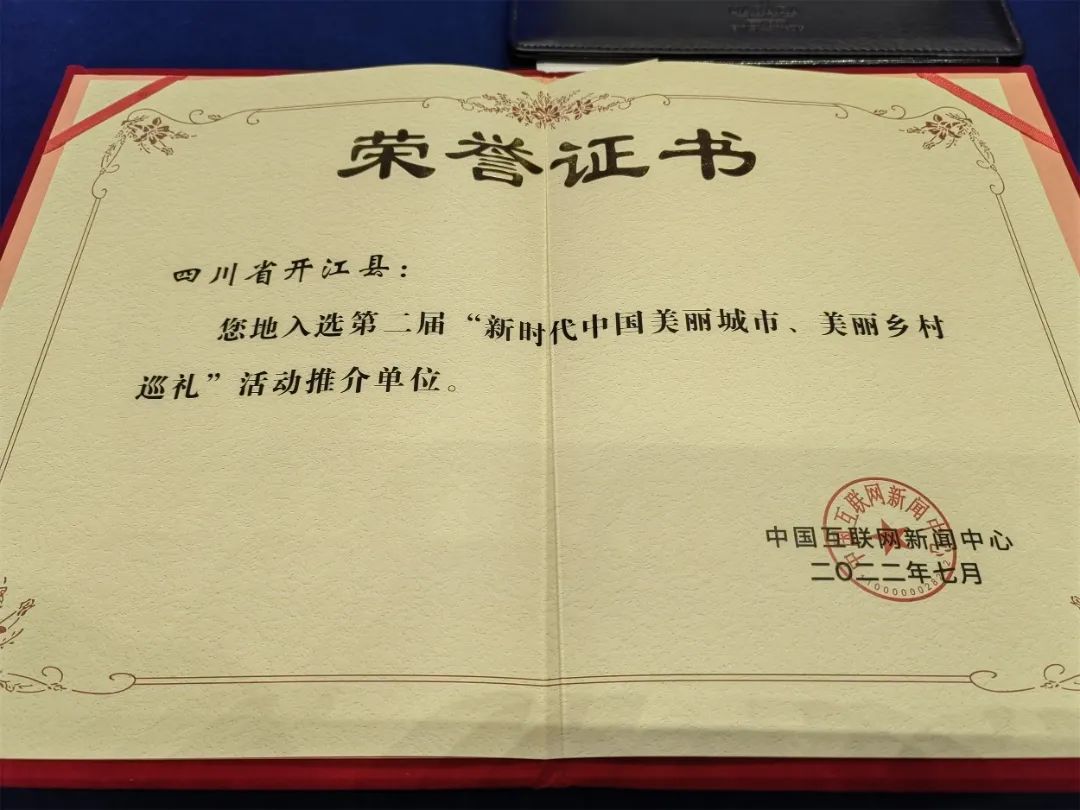 荣誉证书
四川省开江县：
您地入选第二届“新时代中国美丽城市、美丽乡村
巡礼”活动推介单位。
中国互联网新闻中心
中国互联网新闻中心
二〇二二年七月